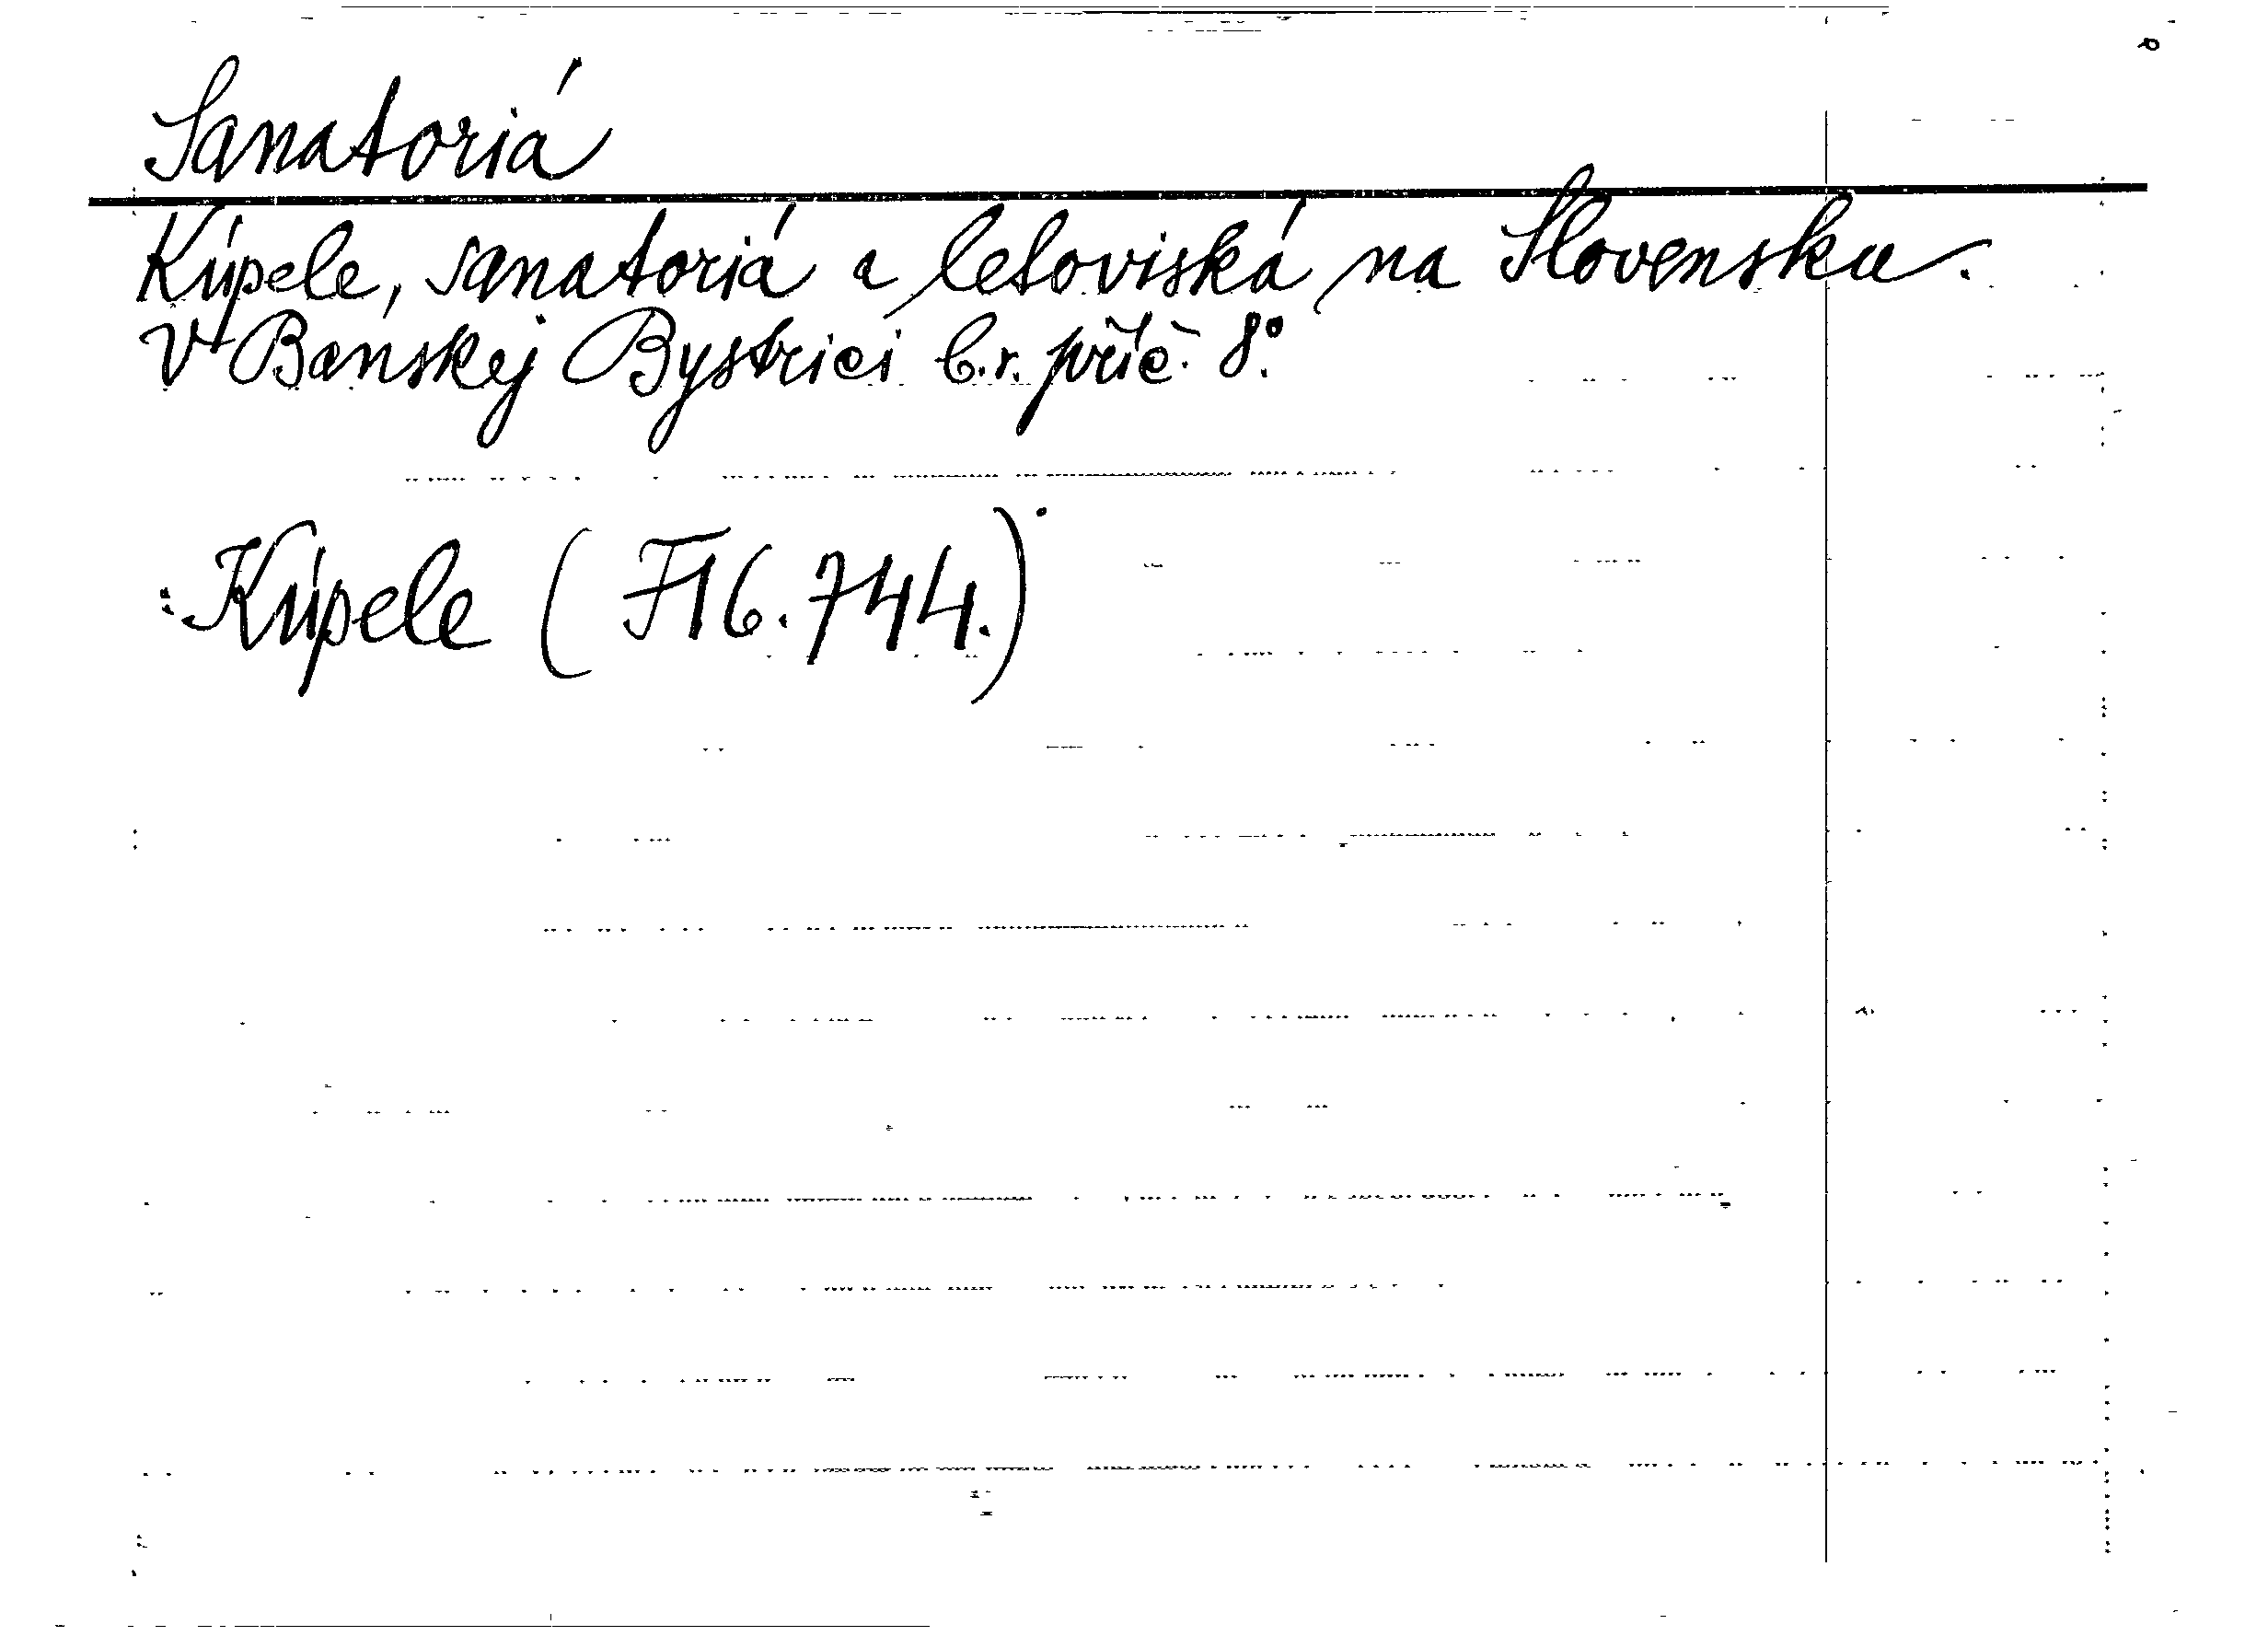 Sanatoriá
Kúpele, sanatoriá a letoviská na Slovensku.
V Banskej Bystrici b.r. příč. 8°.
: Kúpele (F16.744.)